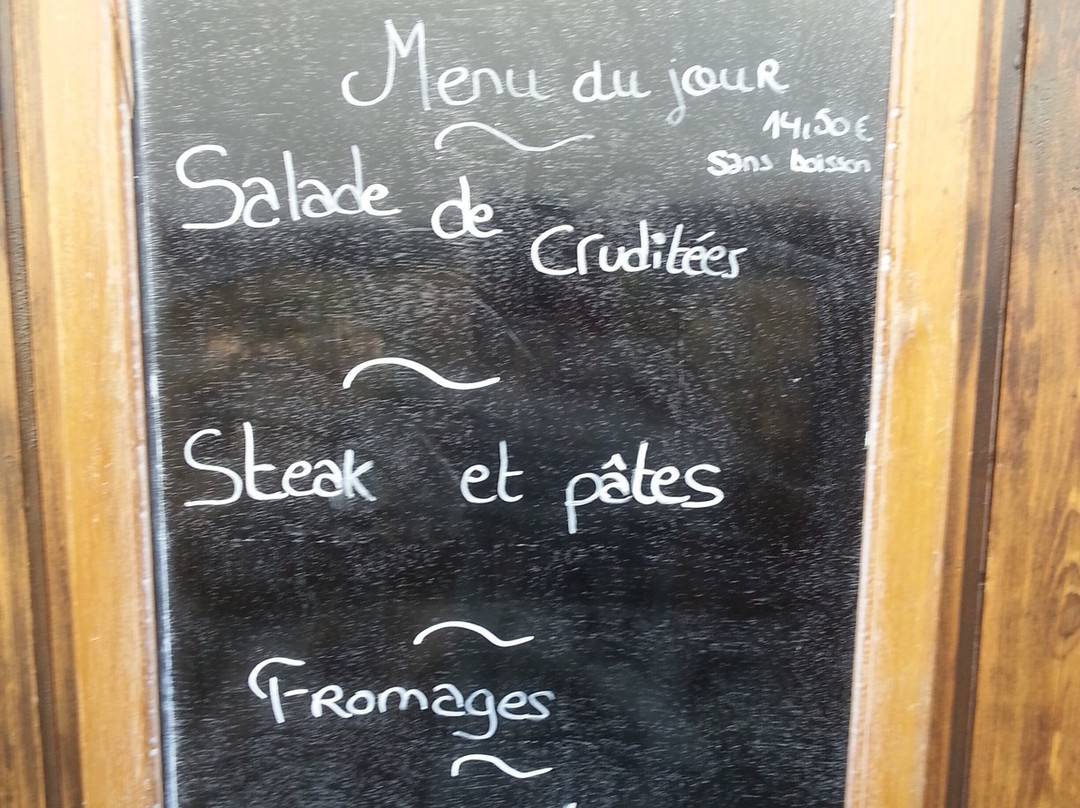 Menu du jour
14,50€
sans boisson
Salade de
Cruditées
Steak et pâtes
Fromages